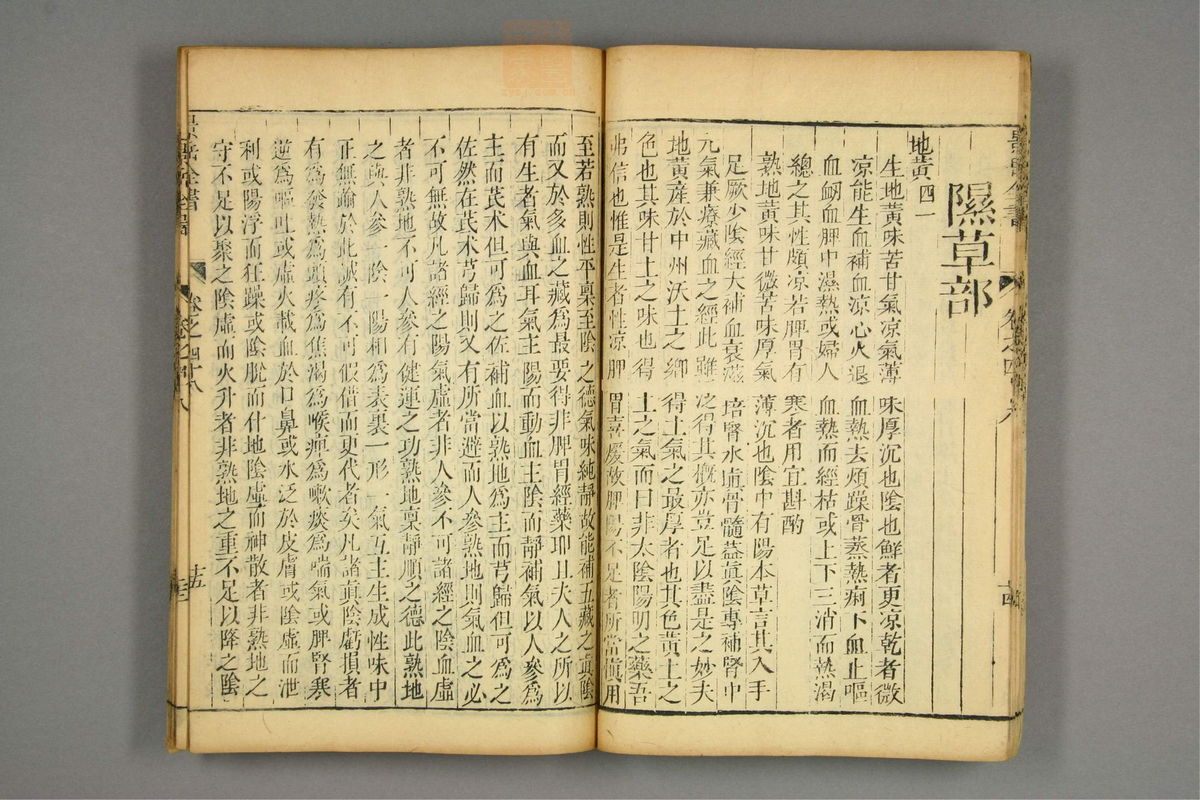 隰草部
地黃四一
生地黃味苦甘氣凉氣薄味厚沉也陰也鮮者更凉乾者微
凉能生血補血凉心火退血熱去煩躁骨蒸熱痢下血止嘔
血衂血脾中濕熱或婦人血熱而經枯或上下三消而熱渴
總之其性頗凉若脾胃有寒者用宜斟酌
熟地黃味甘微苦味厚氣薄沉也陰中有陽本草言其入手
足厥少陰經大補血衰滋培腎水塡骨髓益眞陰專補腎中
元氣兼療藏血之經此雖泛得其槪亦豈足以盡是之妙夫
地黃產於中州沃土之鄉得土氣之最厚者也其色黃土之
色也其味甘土之味也得土之氣而曰非太陰陽明之藥吾
弗信也惟是生者性凉脾胃喜煖故脾陽不足者所當愼用
至若熟則性平稟至陰之德氣味純靜故能補五藏之眞陰
而又於多血之藏爲最要得非脾胃經藥耶且夫人之所以
有生者氣與血耳氣主陽而動血主陰而靜補氣以人參爲
主而芪术但可爲之佐補血以熟地爲主而芎歸但可爲之
佐然在芪术芎歸則又有所當避而人參熟地則氣血之必
不可無故凡諸經之陽氣虛者非人參不可諸經之陰血虛
者非熟地不可人參有健運之功熟地稟靜順之德此熟地
之與人參一陰一陽相爲表裏一形一氣互主生成性味中
正無踰於此誠有不可假借而更代者矣凡諸眞陰虧損者
有爲發熱爲頭疼爲焦渴爲喉痺爲嗽痰爲喘氣或脾腎寒
逆爲嘔吐或虛火載血於口鼻或水泛於皮膚或陰虛而泄
利或陽浮而狂躁或陰脫而仆地陰虛而神散者非熟地之
守不足以聚之陰虛而火升者非熟地之重不足以降之陰
卷之四十八
十五